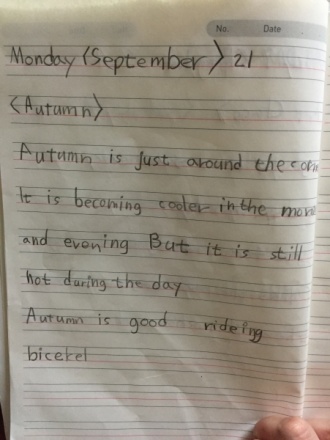 No. Date
Monday (September) 21
<Autumn>
Autumn is just around the corn
It is becoming cooler in the morn
and evening But it is still
hot during the day
Autumn is good rideing
bicekel